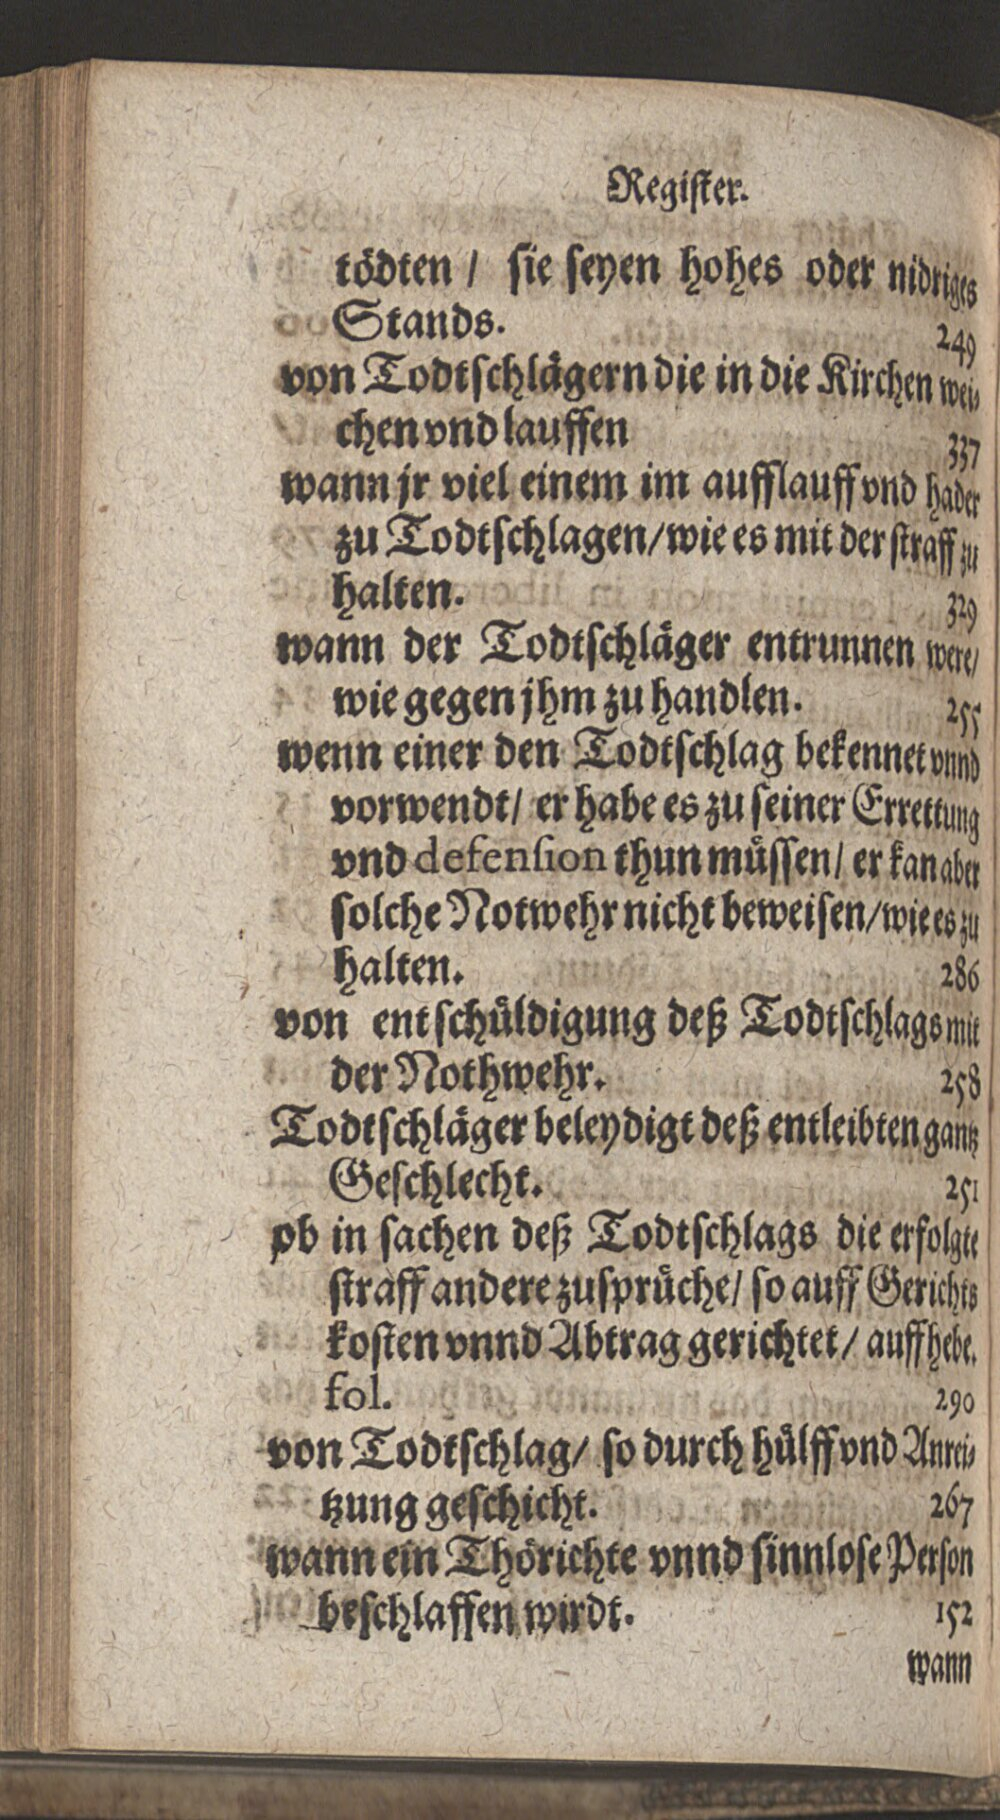 Regiſter.
tödten / ſie ſeyen hohes oder nidriges
Stands. 249
von Todtſchlägern die in die Kirchen wei⸗
chen vnd lauffen 337
wann jr viel einem im aufflauff vnd hader
zu Todtſchlagen / wie es mit der ſtraff zu
halten. 329
wann der Todtſchläger entrunnen were /
wie gegen jhm zu handlen. 255
wenn einer den Todtſchlag bekennet vnnd
vorwendt / er habe es zu ſeiner Errettung
vnd defenſion thun müſſen / er kan aber
ſolche Notwehr nicht beweiſen / wie es zu
halten. 286
von entſchüldigung deß Todtſchlags mit
der Nothwehr. 258
Todtſchläger beleydigt deß entleibten gantz
Geſchlecht. 251
ob in ſachen deß Todtſchlags die erfolgte
ſtraff andere zuſprüche / ſo auff Gerichts
koſten vnnd Abtrag gerichtet / auffhebe.
fol. 290
von Todtſchlag / ſo durch hülff vnd Anrei⸗
tzung geſchicht. 267
wann ein Thörichte vnnd ſinnloſe Perſon
beſchlaffen wirdt. 152
wann